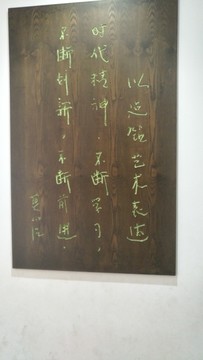 以造纸艺术表达
时代精神。不断学习，
不断创新，不断前进。